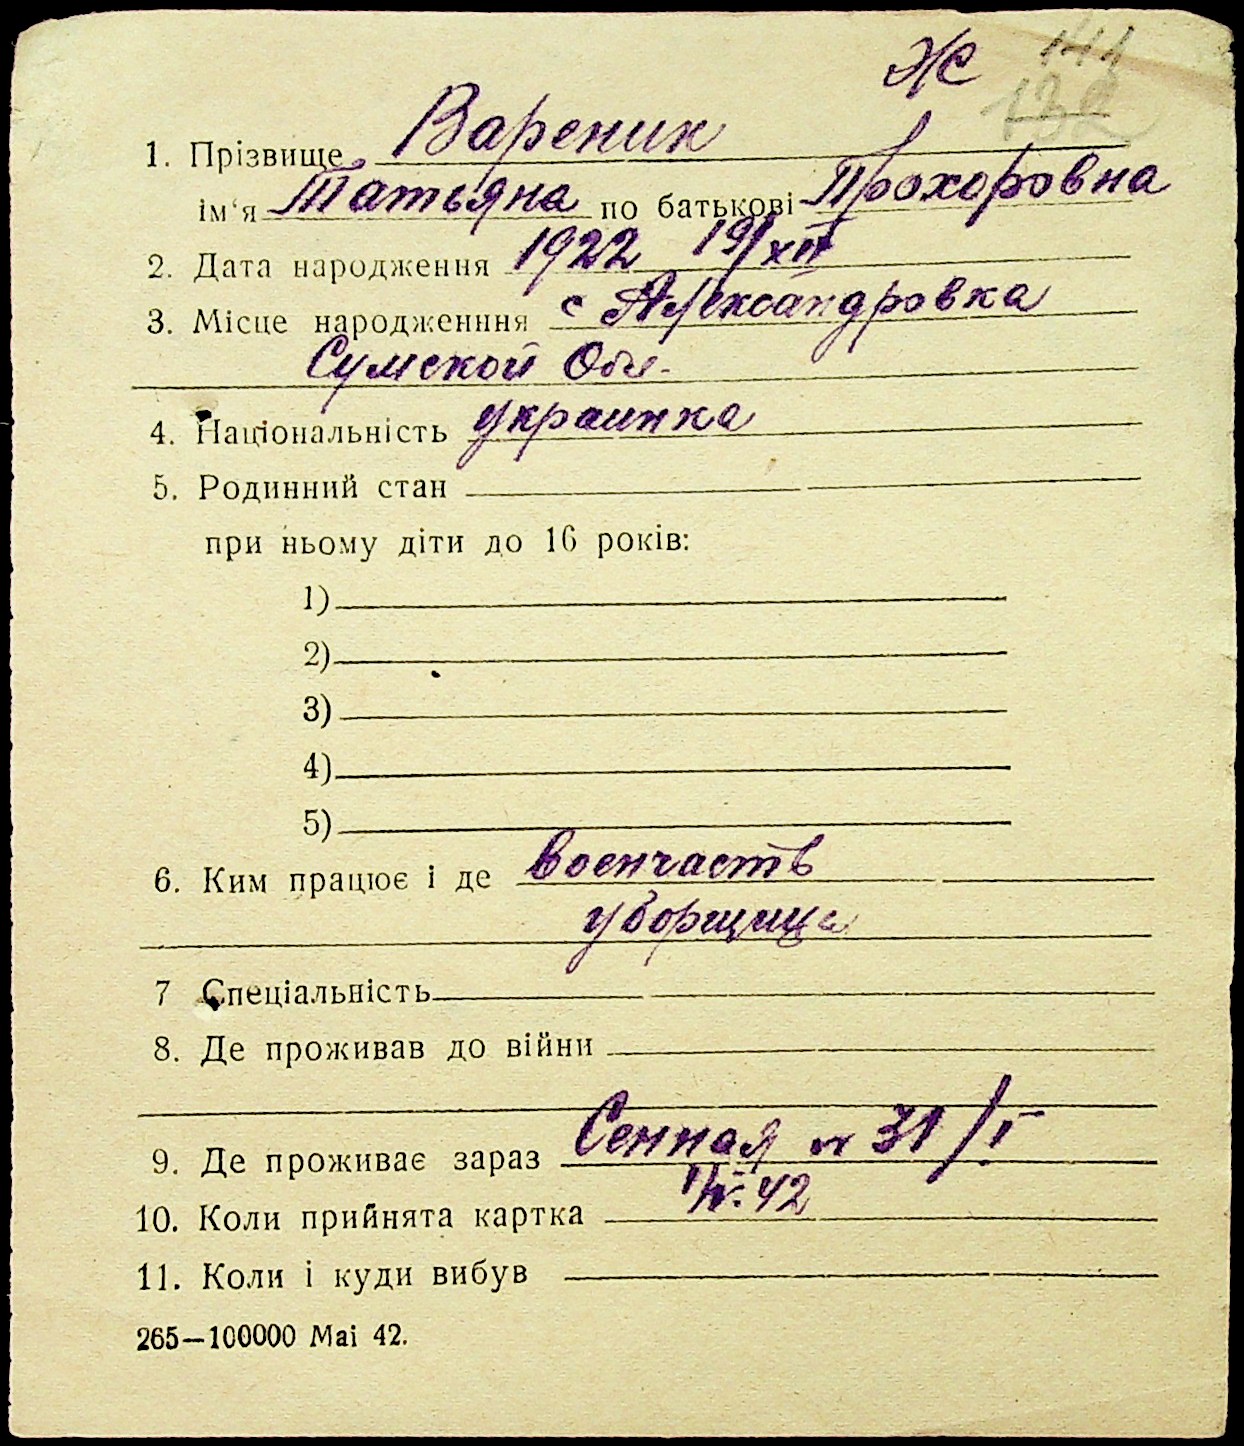 Ж 144
132
1. Прізвище Вареник
ім'я Татьяна по батькові Прохоровна
2. Дата народження 1922 19/XII
3. Місце народженння с Александровка
Сумской Обл.
4. Національність украинка
5. Родинний стан
при ньому діти до 16 років:
1)
2)
3)
4)
5)
6. Ким працює і де воєнчасть
уборщица
7 Спеціальність
8. Де проживав до війни
9. Де проживає зараз Сенная н 31/I
10. Коли прийнята картка 42
11. Коли і куди вибув
265—100000 Mai 42.